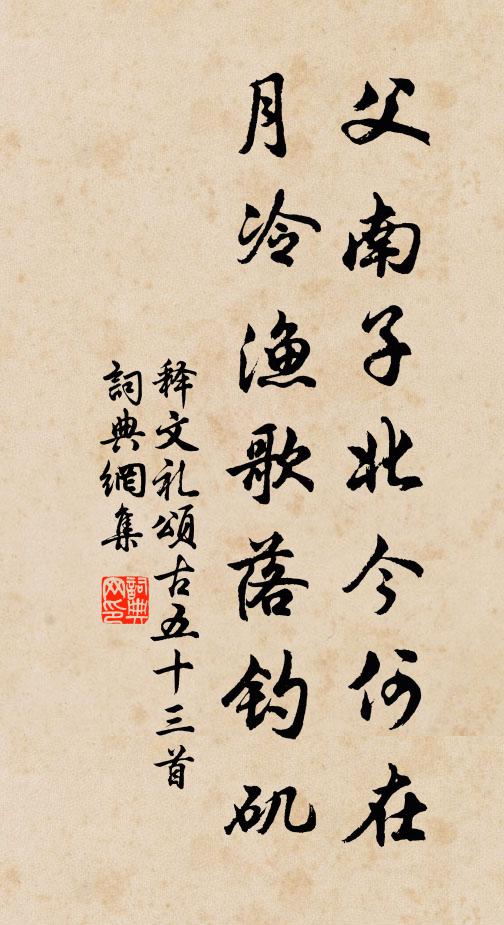 父南子北今何在
月冷渔歌落钓矶
释文礼頌古五十三首
詞典網集
詞典网印